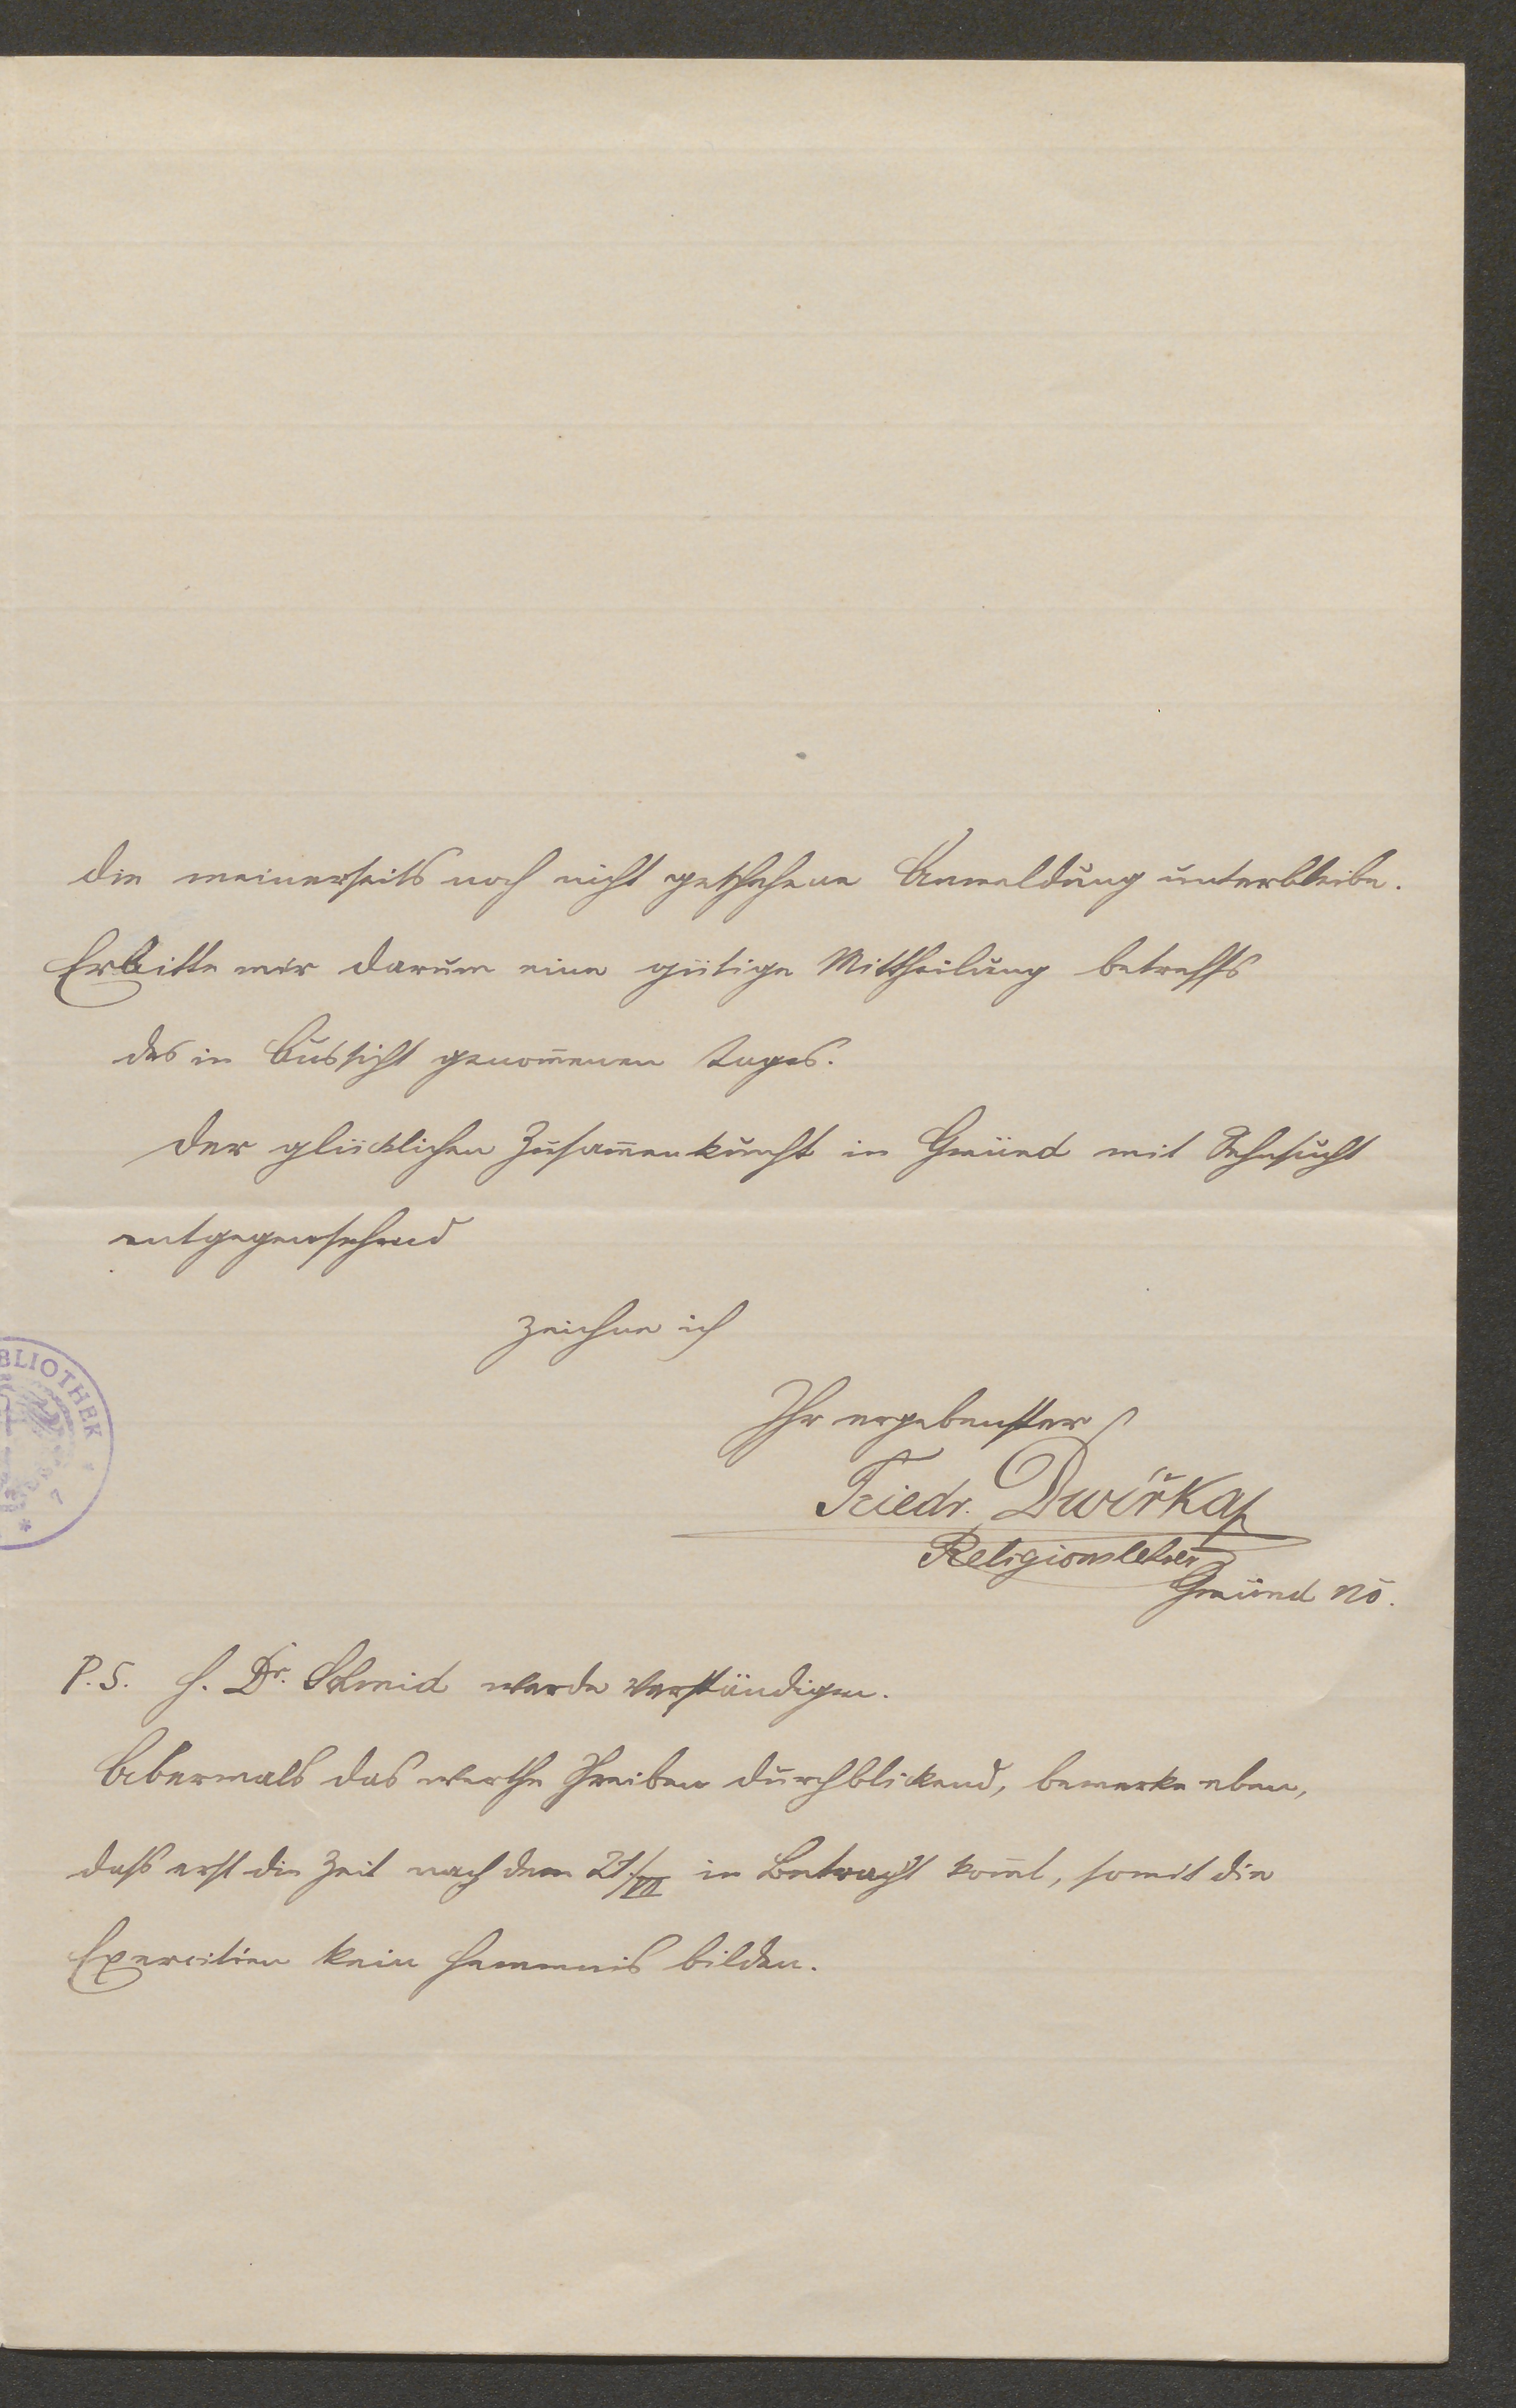 die meinerseits noch nicht geschehene Anmeldung unterbleibe.
Erbitte mir darum eine gütige Mittheilung betreffs
des in Aussicht genom̅enen Tages.
Der glücklichen Zusam̅enkunft in Gmünd mit Sehnsucht
entgegensehend
zeichne ich
Ihr ergebenster
Friedr. Dwořka
Religionslehrer
Gmünd NÖ.
BLIOTHEK
P.S. H. Dr. Schmid werde verständigen.
Abermals das werthe Schreiben durchblickend, bemerke eben,
dass erst die Zeit nach dem 21./VII in Betracht kom̅t, somit die
Exercitien kein Hemmnis bilden.